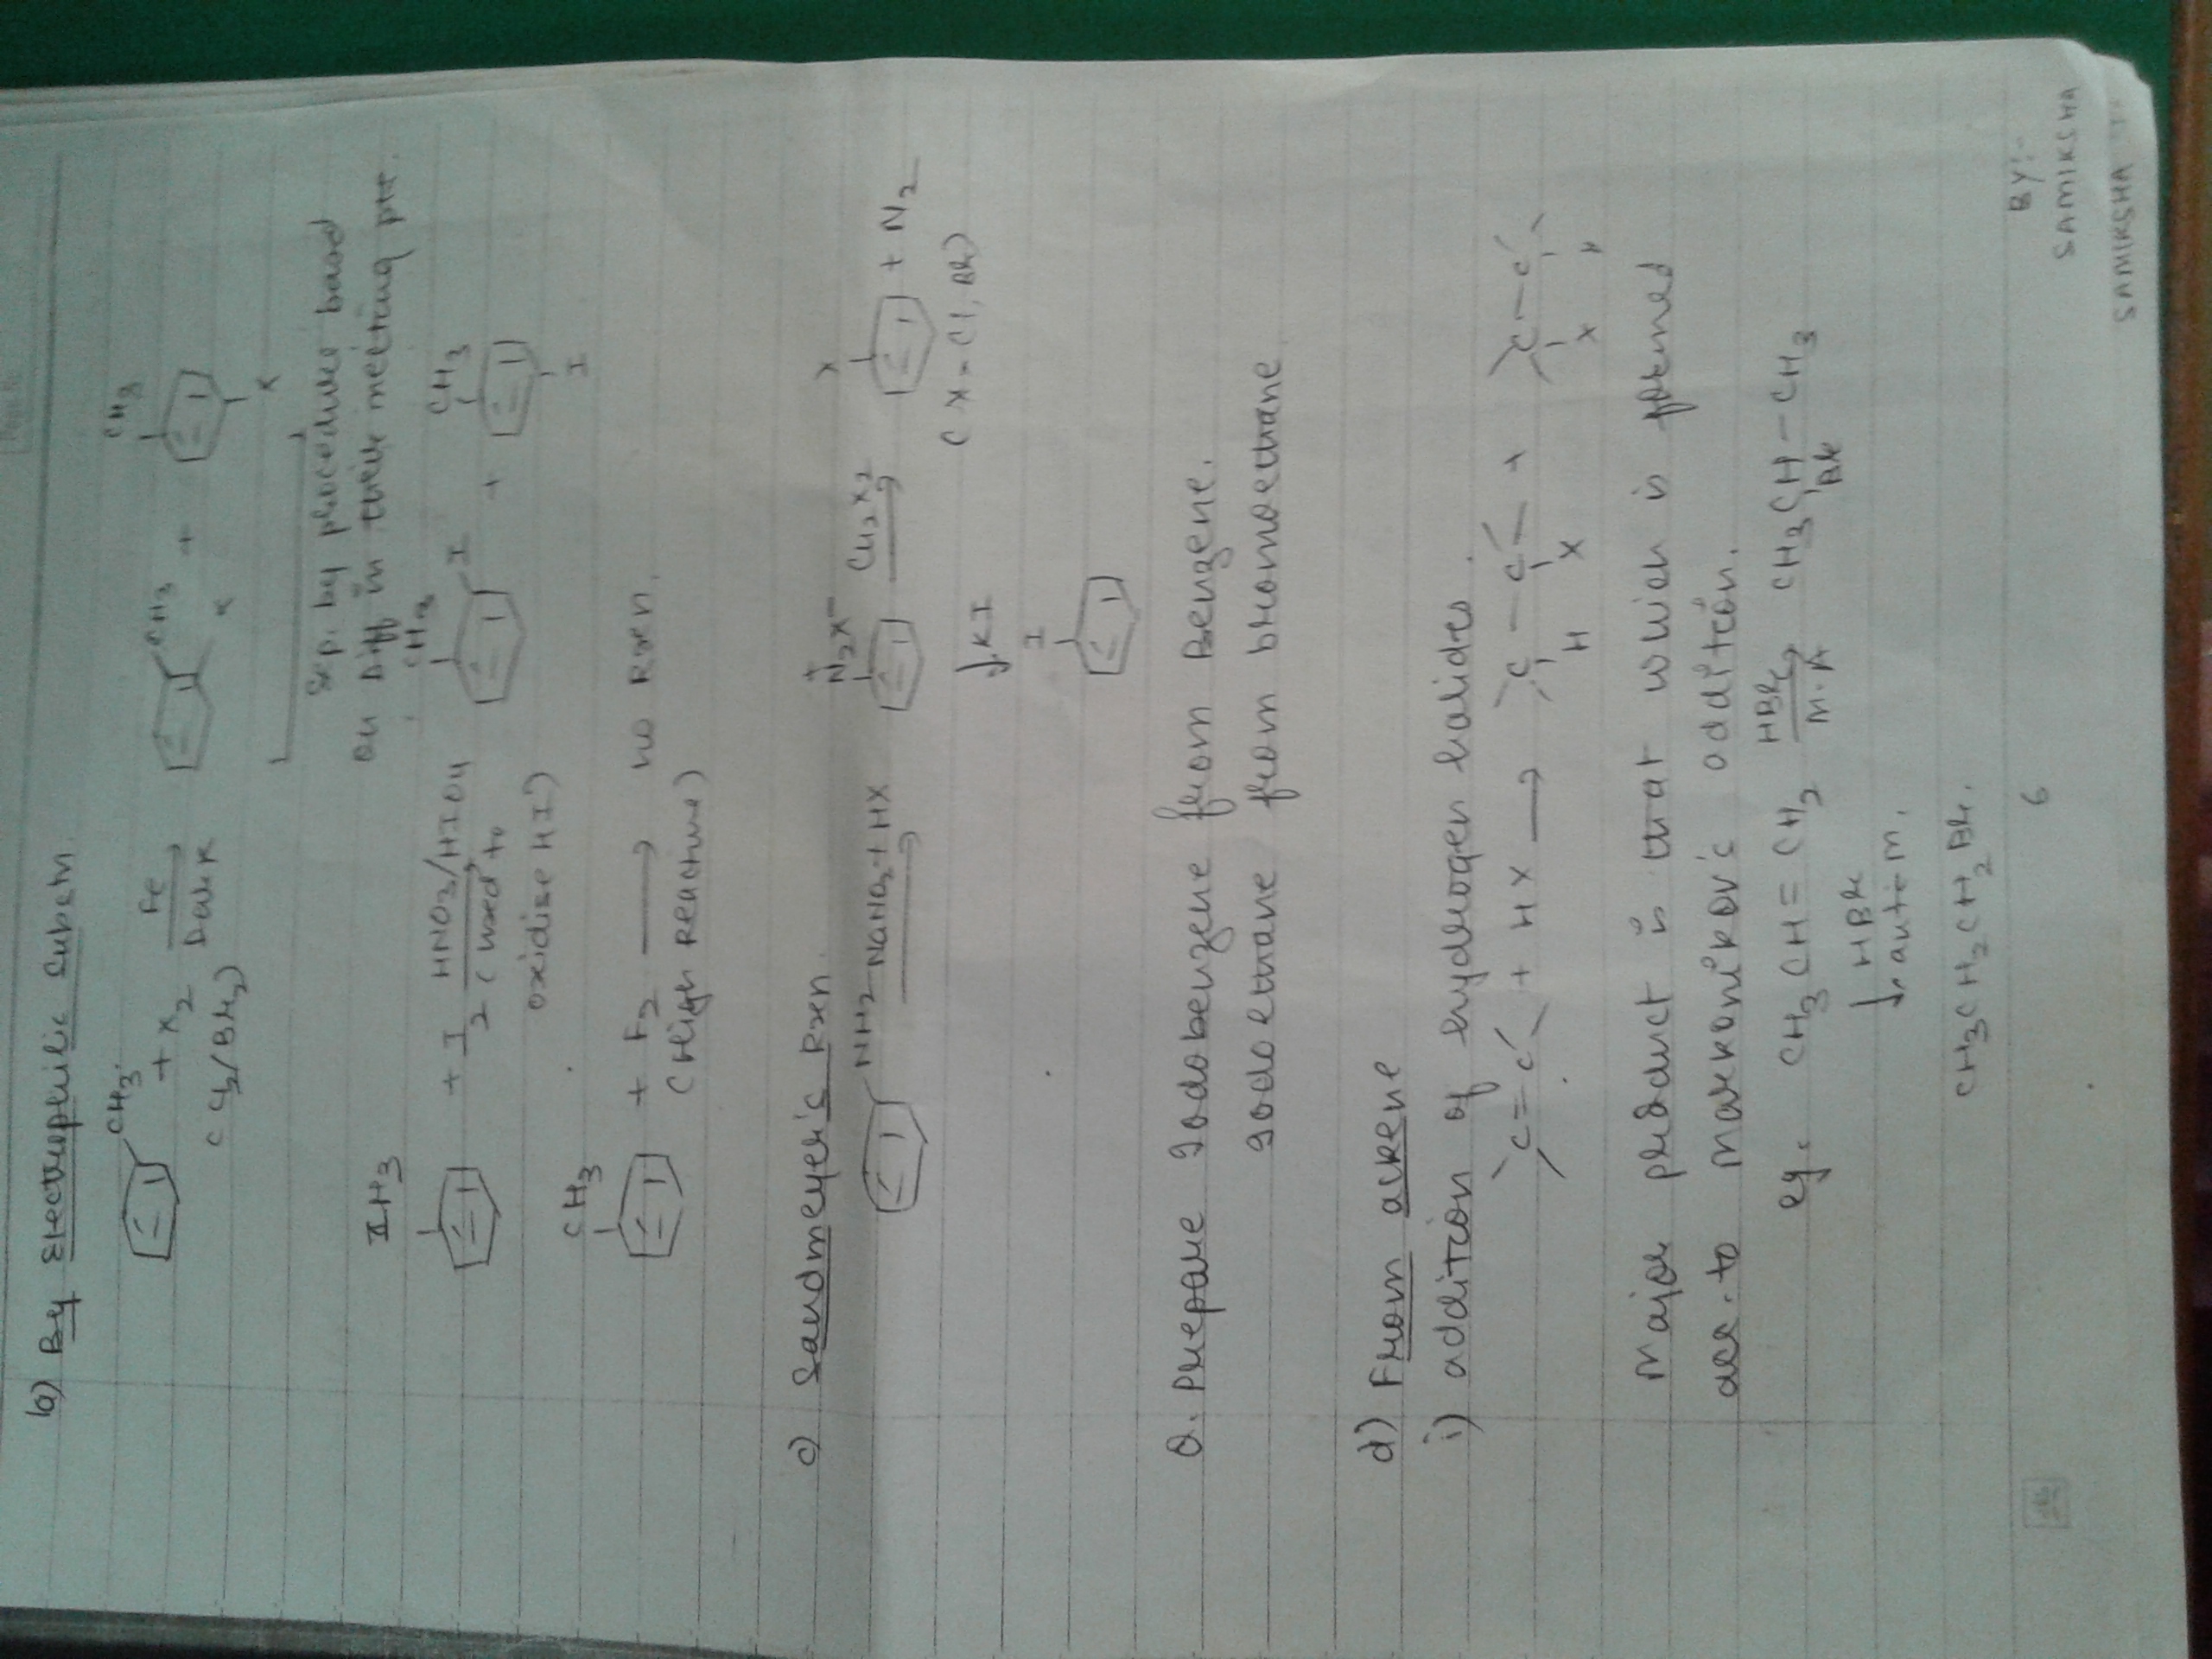 b) By Electrophilic substn.
CH3 + X2 Fe CH3 + CH3
(Cl2/Br2) Dark X X
Sep. by procedure based
on Diff in their melting ptt.
CH3 + I2 HNO3/HIO4 CH3 I + CH3 I
(used to
oxidise HI)
CH3 + F2 → no Rxen.
(High Reactive)
c) Sandmeyer's Rxen.
NH2 NaNO2+HX N2X- + Cu2X2 X + N2
(X = Cl, Br)
↓ KI
I
Q. Prepare Iodobenzene from Benzene.
Iodoethane from bromoethane
d) From alkene
i) addition of hydrogen halides.
C=C + HX → C-C + C-C
H X X H
Major product is that which is formed
acc. to markonikov's addition.
eg. CH3CH=CH2 HBr M.A CH3CH-CH3
Br
↓ HBr anti-M.
CH3CH2CH2Br.
6
BY:-
SAMIKSHA
SAMIKSHA